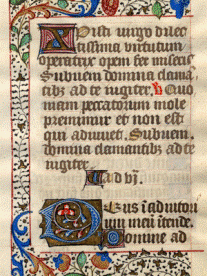 Xpisti virgo dilec
tissima virtutum
operatrix opem fer miseris
Subveni domina clama
tibz ad te iugiter. Quo
niam peccatorum mole
premimur et non est
qui adiuvet. Subveni
domina clamantibz ad te
iugiter
Ad
Deus i adiutori
um meū itende.
Domine ad